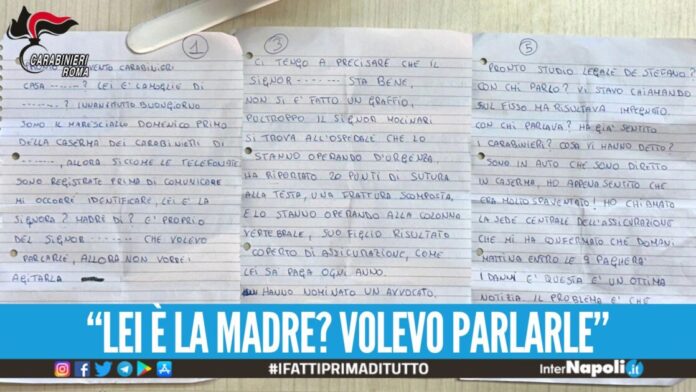 CARABINIERI
ROMA
1
INTERVENTO CARABINIERI
CASA ------? LEI È LA MOGLIE DI
------? INNANZITUTTO BUONGIORNO
SONO IL MARESCIALLO DOMENICO PRIMO
DELLA CASERMA DEI CARABINIERI DI
------, ALLORA SICCOME LE TELEFONATE
SONO REGISTRATE PRIMA DI COMUNICARE
MI OCCORRE IDENTIFICARE, LEI È LA
SIGNORA? MADRE DI? E' PROPRIO
DEL SIGNOR ------- CHE VOLEVO
PARLARLE, ALLORA NON VORREI
AGITARLA
3
CI TENGO A PRECISARE CHE IL
SIGNOR ------ STA BENE,
NON SI E' FATTO UN GRAFFIO,
PULTROPPO IL SIGNOR MOLINARI
SI TROVA ALL'OSPEDALE CHE LO
STANNO OPERANDO D'URGENZA,
HA RIPORTATO 20 PUNTI DI SUTURA
ALLA TESTA, UNA FRATTURA SCOMPOSTA,
E LO STANNO OPERANDO ALLA COLONNA
VERTEBRALE, SUO FIGLIO RISULTATO
COPERTO DI ASSICURAZIONE, COME
LEI SA PAGA OGNI ANNO.
HANNO NOMINATO UN AVVOCATO,
5
PRONTO STUDIO LEGALE DE STEFANO?
CON CHI PARLO? VI STAVO CHIAMANDO
SUL FISSO MA RISULTAVA IMPEGNATO.
CON CHI PARLAVA? HA GIA' SENTITO
I CARABINIERI? COSA VI HANNO DETTO?
SONO IN AUTO CHE SONO DIRETTO
IN CASERMA, HO APPENA SENTITO CHE
ERA MOLTO SPAVENTATO! HO CHIAMATO
LA SEDE CENTRALE DELL'ASSICURAZIONE
CHE MI HA CONFERMATO CHE DOMANI
MATTINA ENTRO LE 9 PAGHERA'
I DANNI E' QUESTA E' UN OTTIMA
NOTIZIA. IL PROBLEMA E' CHE
“LEI È LA MADRE? VOLEVO PARLARLE”
#IFATTIPRIMADITUTTO
InterNapoli.it